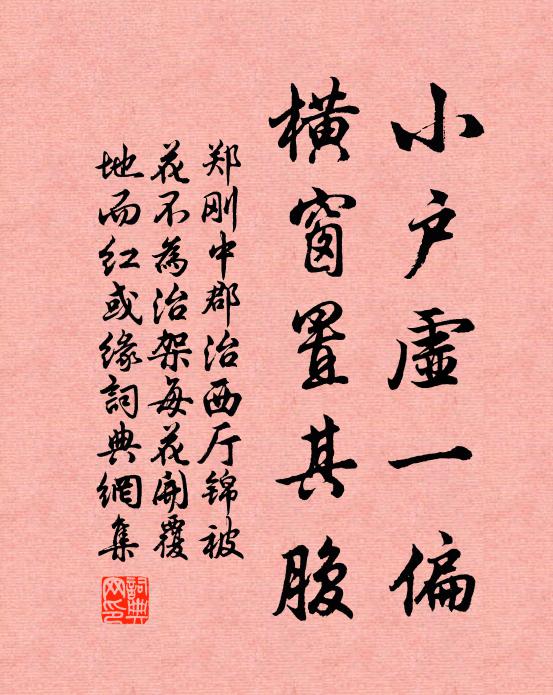 小户虚一偏
横窗置其腹
郑刚中郡治西厅锦被
花不為治架每花開覆
地而红或缘詞典網集
詞典網印